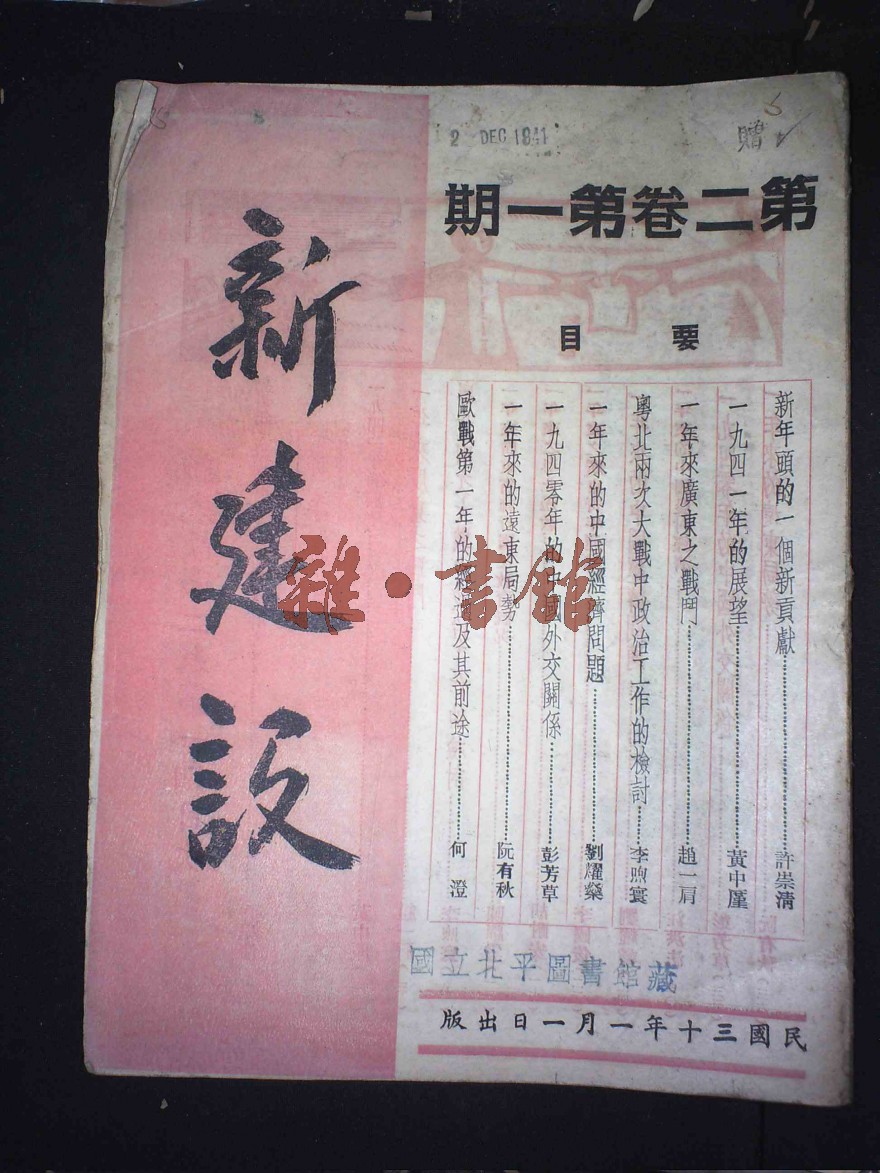 2 DEC 1941
贈
第二卷第一期
新建設
要目
新年頭的一個新貢獻……許崇清
一九四一年的展望……黃中廑
一年來廣東之戰鬥……趙一肩
粵北兩次大戰中政治工作的檢討……李煦寰
一年來的中國經濟問題……劉耀燊
一九四零年的中國外交關係……彭芳草
一年來的遠東局勢……阮有秋
歐戰第一年的經過及其前途……何澄
雜·書館
國立北平圖書館藏
民國三十年一月一日出版